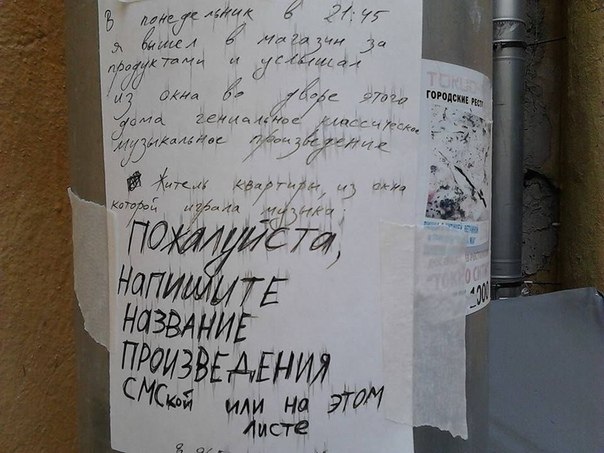 В понедельник в 21:45
я вышел в магазин за
продуктами и услышал
из окна во дворе этого
дома гениальное классическое
музыкальное произведение
Житель квартиры, из окна
которой играла музыка,
ПОЖАЛУЙСТА,
НАПИШИТЕ
НАЗВАНИЕ
ПРОИЗВЕДЕНИЯ
СМСкой или на ЭТОМ
листе
ГОРОДСКИЕ РЕСТ